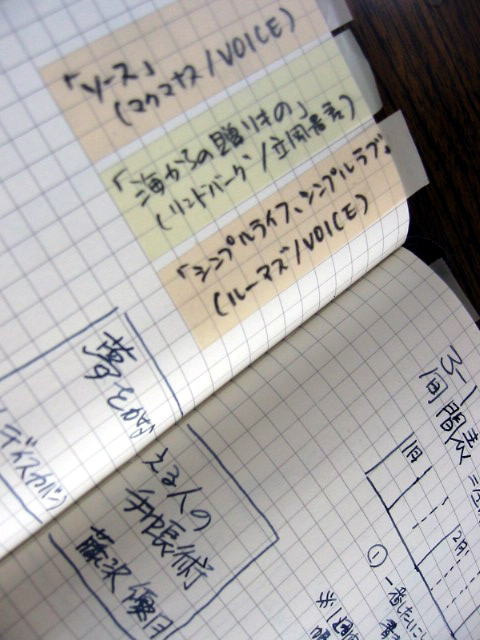 「ソース」
(マクマナス/VOICE)
「海からの贈りもの」
(リンドバーグ/立風書房)
「シンプルライフ、シンプルラブ」
(ルーマズ/VOICE)
夢をかな
える人の
手帳術
藤沢優月
ディスカバァ
3-1
間表
1月
2月
①